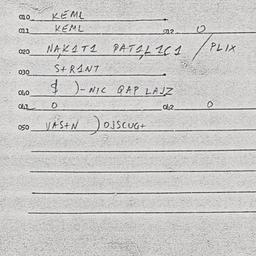 010 KEML
011 KEML 012 0
020 NAK1T1 PAT1L1C1 / PLIX
030 S+R1NT
040 $ )-NIC QAP LAJZ
041 0 042 0
050 VAS+N )OJSCUG+